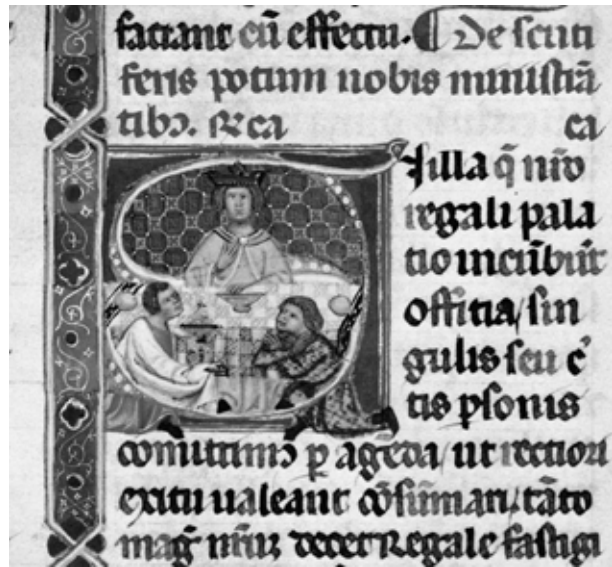 faciant cū effectu. ¶ De scuti
feris potum nobis ministrā
tibꝰ. Rͣca ca
SI illa q̄ nrō
regali pala
tio incūbūt
offitia, sin
gulis seu c̓
tis ꝑsonis
comittimꝰ ꝑ agēda, ut rectiori
exitu ualeant cōsūmari, tāto
mag̓ nr̄uꝫ decet Regale fastigi